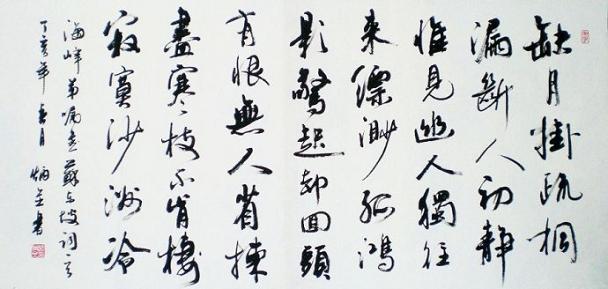 缺月掛疏桐
漏斷人初靜
惟見幽人獨往
來縹緲孤鴻
影驚起却回頭
有恨無人省揀
盡寒枝不肯棲
寂寞沙洲冷
海峰弟囑書蘇東坡詞
丁亥年春月炳書